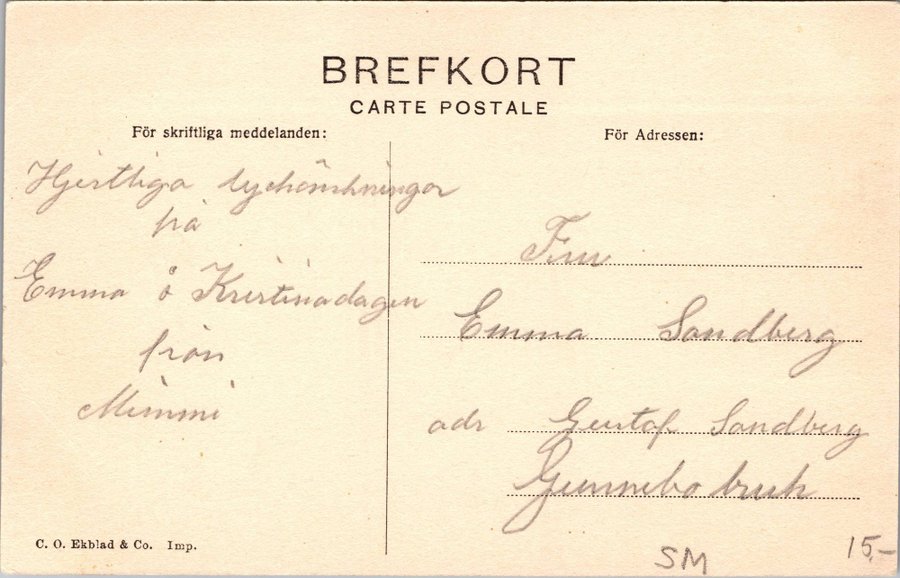 BREFKORT
CARTE POSTALE
För skriftliga meddelanden:
Hjertliga lyckönskningar
på
Emma å Kristinadagen
från
Mimmi
För Adressen:
Emma Sandberg
adr Gustaf Sandberg
Gunnebo bruk
C. O. Ekblad & Co. Imp.
SM
15,-